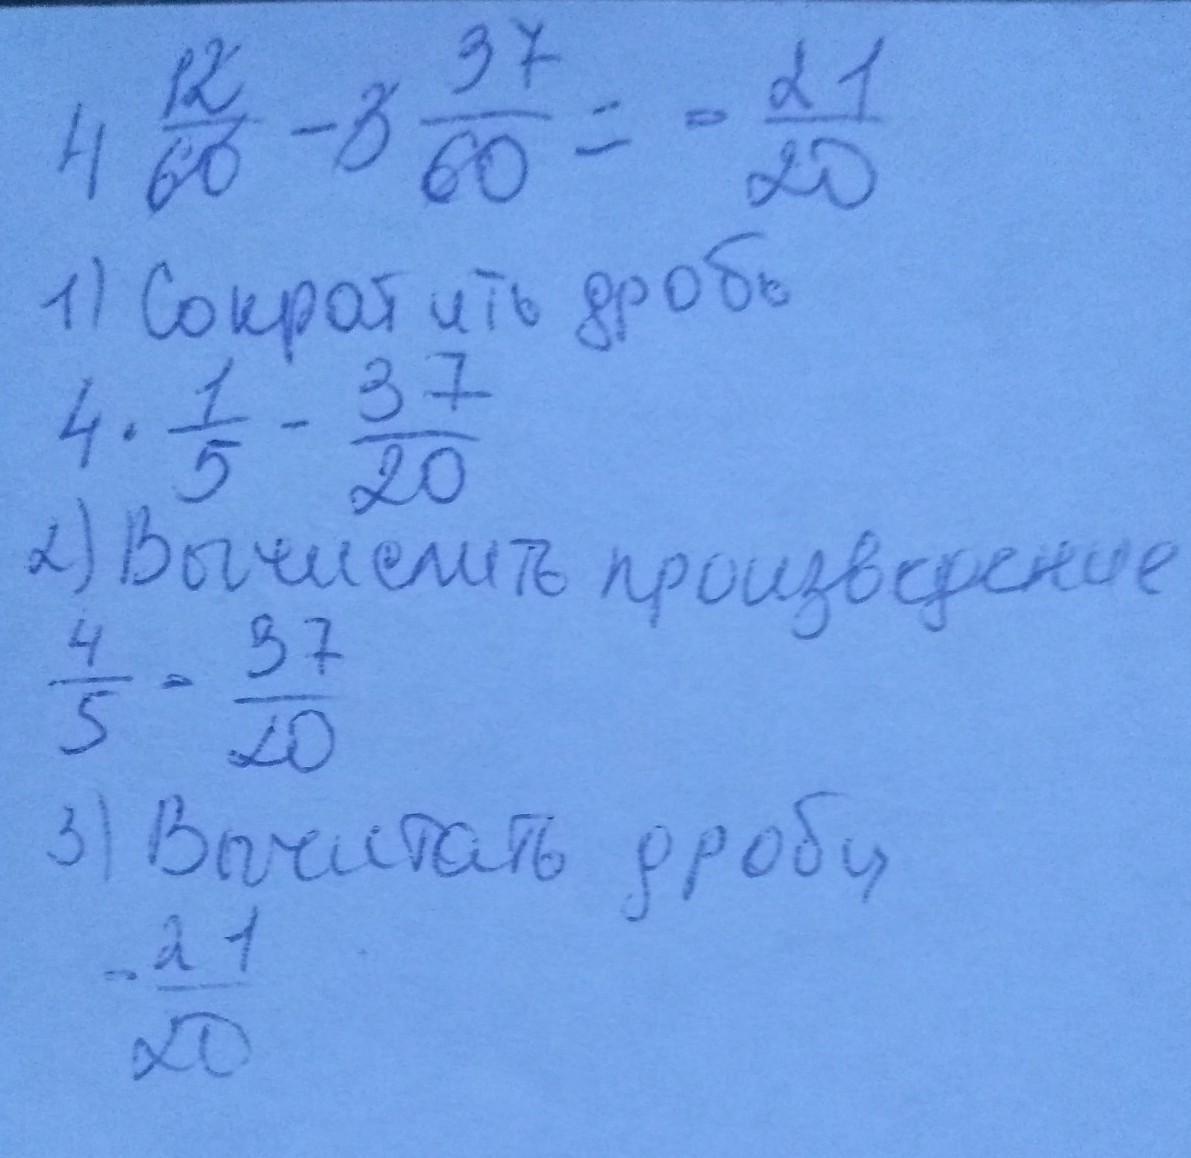 4 12/60 - 3 37/60 = - 21/20
1) Сократить дробь
4 · 1/5 - 37/20
2) Вычислить произведение
4/5 - 37/20
3) Вычитать дробь
- 21/20